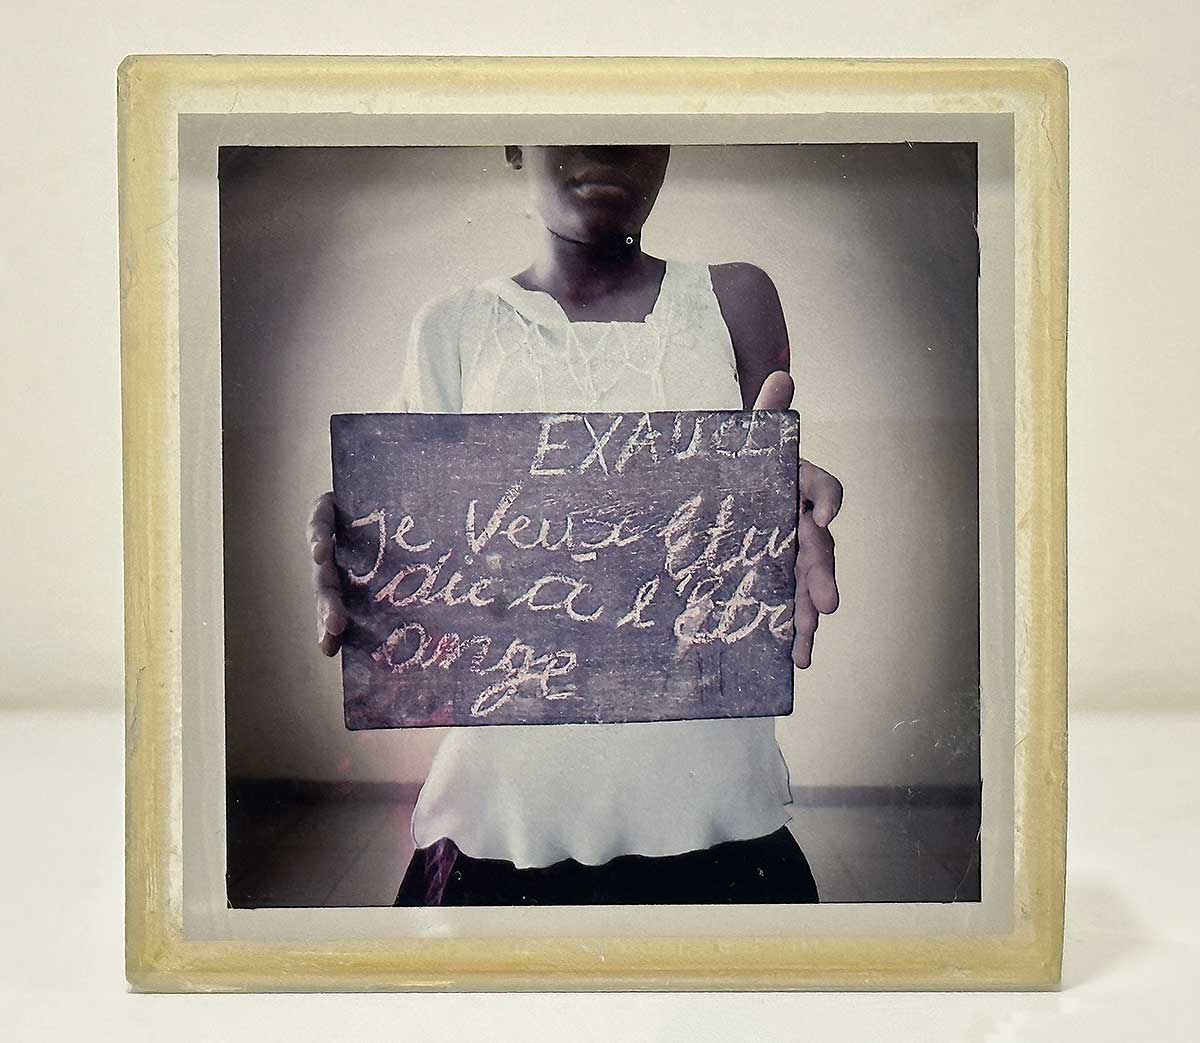 EXAUCEE
Je Veux Etu
die a l'Etr
ange